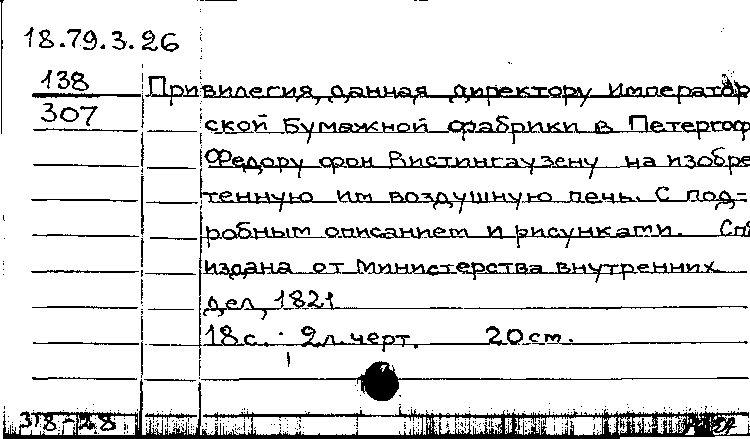 18.79.3.26
138
307
Привилегия, данная директору Император
ской Бумажной фабрики в Петергоф
Федору фон Вистингаузену на изобре
тенную им воздушную печь. С под-
робным описанием и рисунками. Спб
издана от Министерства внутренних
дел, 1821
18 с. 2 л. черт. 20 ст.
318-28